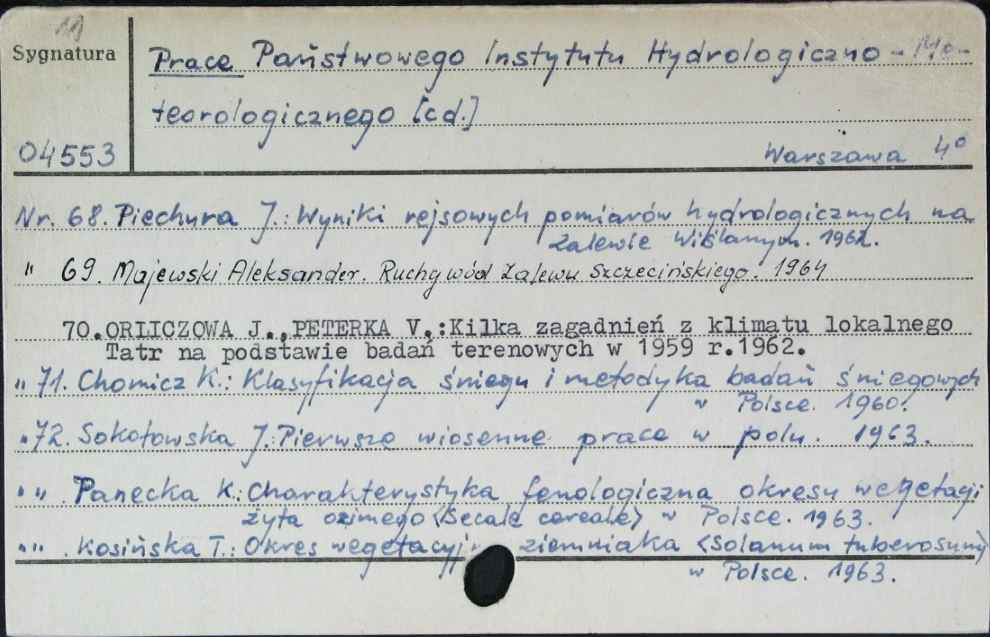 11
Sygnatura
Prace Państwowego Instytutu Hydrologiczno-Me-
teorologicznego [cd.]
04553
Warszawa 4°
Nr. 68. Piechura J.: Wyniki rejsowych pomiarów hydrologicznych na
Zalewie Wiślanym. 1962.
" 69. Majewski Aleksander. Ruchy wód Zalewu Szczecińskiego. 1964
70. ORLICZOWA J., PETERKA V.: Kilka zagadnień z klimatu lokalnego
Tatr na podstawie badań terenowych w 1959 r. 1962.
" 71. Chomicz K.: Klasyfikacja śniegu i metodyka badań śniegowych
w Polsce. 1960.
" 72. Sokołowska J.: Pierwsze wiosenne prace w polu. 1963.
" " . Panecka K.: Charakterystyka fenologiczna okresu wegetacji
żyta ozimego (Secale cereale) w Polsce. 1963.
" " . Kosińska T.: Okres wegetacyjny ziemniaka (Solanum tuberosum)
w Polsce. 1963.